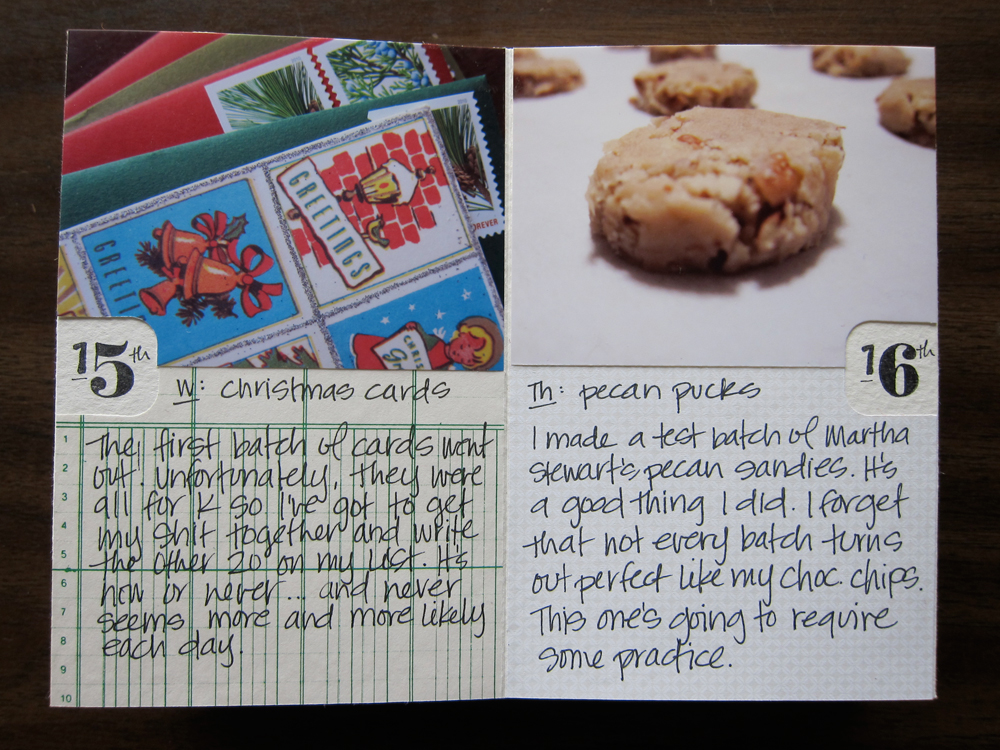 FOREVER
GREETINGS
GREETI
CHRIS
Gr
15th
W: christmas cards
1
2
3
4
5
6
7
8
9
10
The first batch of cards went
out. Unfortunately, they were
all for K so I've got to get
my shit together and write
the other 20 on my list. It's
now or never... and never
seems more and more likely
each day.
16th
Th: pecan pucks
I made a test batch of Martha
Stewart's pecan sandies. It's
a good thing I did. I forget
that not every batch turns
out perfect like my choc. chips.
This one's going to require
some practice.